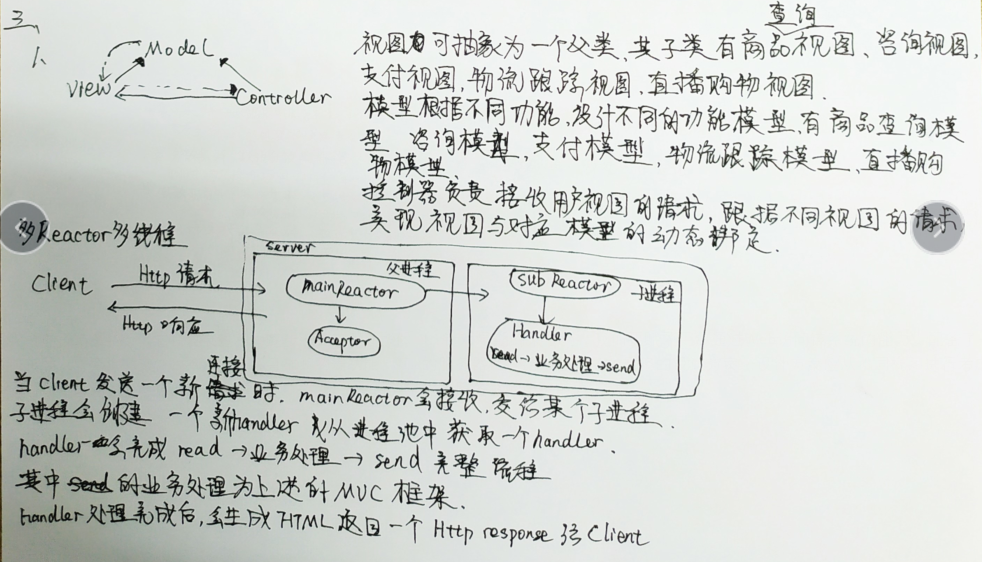 三、
1、
Model
View
Controller
查询
视图可抽象为一个父类、其子类有商品视图、咨询视图,
支付视图,物流跟踪视图、直播购物视图.
模型根据不同功能,设计不同的功能模型,有商品查询模
型 咨询模型,支付模型,物流跟踪模型、直播购
物模型.
控制器负责接收用户视图的请求,跟据不同视图的请求,
实现视图与对应模型的动态绑定.
多Reactor多线程
server
Client
Http 请求
Http 响应
父进程
mainReactor
Acceptor
子进程
subReactor
Handler
read→业务处理→send
连接
当client发送一个新 时. mainReactor会接收,交给某个子进程.
子进程会创建 一个新handler或从进程池中获取一个handler.
handler会完成 read →业务处理→ send 完整流程
其中 的业务处理为上述的MVC框架.
Handler处理完成后,会生成HTML返回一个 Http response 给 Client